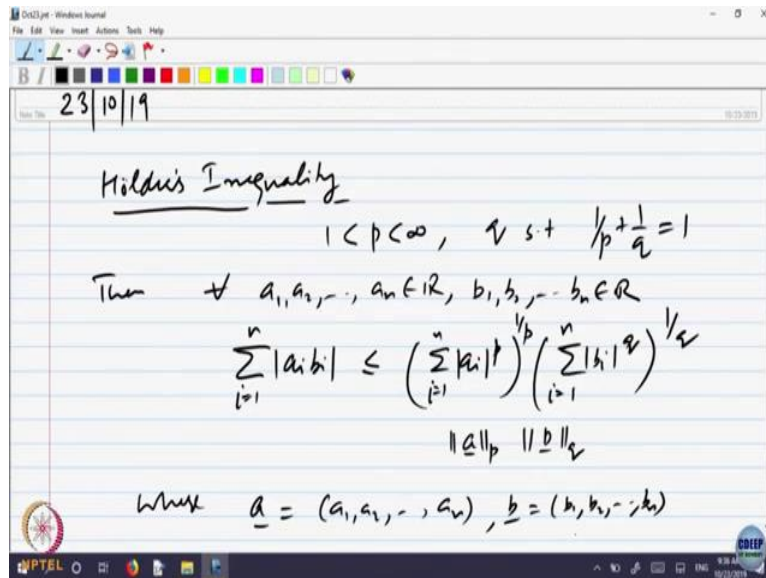 Oct23.jnt - Windows Journal
File Edit View Insert Actions Tools Help
B I
Note Title
10/23/2019
23|10|19
Hölder's Inequality
1 < p < ∞, q s.t 1/p + 1/q = 1
Then ∀ a₁, a₂, .., aₙ ∈ ℝ, b₁, b₂, .. bₙ ∈ ℝ
∑ᵢ₌₁ⁿ |aᵢbᵢ| ≤ (∑ᵢ₌₁ⁿ |aᵢ|^p)^(1/p) (∑ᵢ₌₁ⁿ |bᵢ|^q)^(1/q)
||a||_p ||b||_q
where a = (a₁, a₂, .., aₙ), b = (b₁, b₂, .., bₙ)
CDEEP
NPTEL
ENG
9:36 AM
10/23/2019